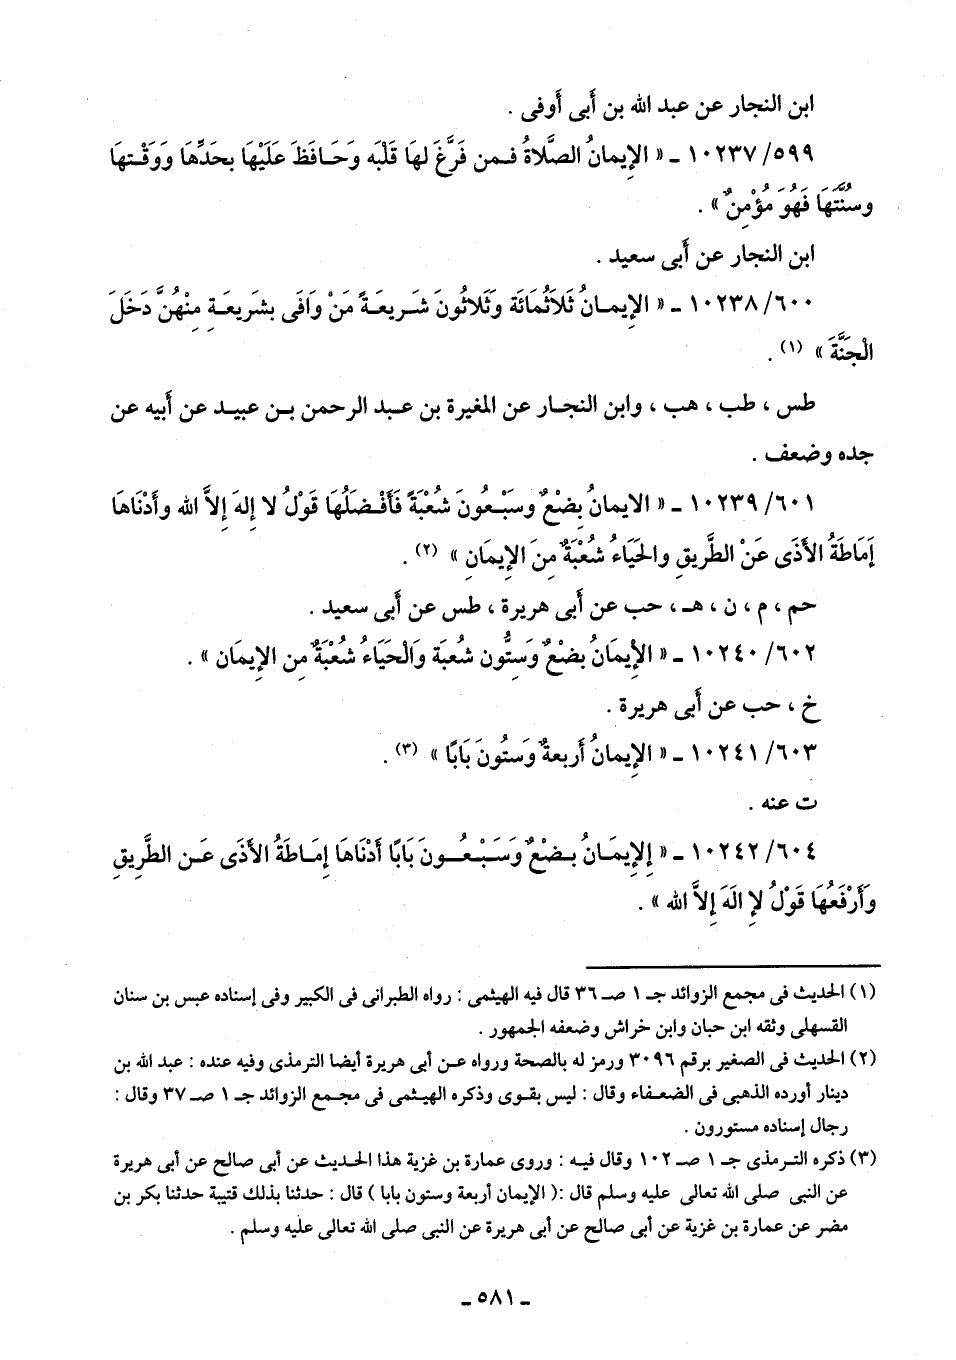 ابن النجار عن عبد الله بن أبى أوفى .
٥٩٩/ ١٠٢٣٧ ـ « الإيمانُ الصَّلاةُ فـمن فَرَّغَ لهَا قَلْبَه وَحَـافَظَ عَلَيْهَا بحَدِّهَا وَوَقْـتهَا
وسُنَّتهَا فَهُوَ مُؤْمِنٌ » .
ابن النجار عن أبى سعيد .
٦٠٠/ ١٠٢٣٨ ـ « الإيمـانُ ثَلاَثُمائَة وثَلاَثُونَ شَـريعَـةً مَنْ وَافَى بشَريعَـةٍ مِنْهُنَّ دَخَلَ
الْجَنَّةَ » (١) .
طس ، طب ، هب ، وابن النجـار عن المغيرة بن عـبد الرحمن بـن عبيـد عن أبيه عن
جده وضعف .
٦٠١/ ١٠٢٣٩ ـ « الايمانُ بِضْعٌ وسَبْـعُونَ شُعْبَةً فَأَفْـضَلُهَا قَوْلُ لا إلهَ إلاَّ الله وأدْنَاهَا
إمَاطَةُ الأَذَى عَنْ الطَّريقِ والحَيَاءُ شُعْبَةٌ مِنَ الإيمَانِ » (٢) .
حم ، م ، ن ، هـ ، حب عن أبى هريرة ، طس عن أبى سعيد .
٦٠٢/ ١٠٢٤٠ ـ « الأيمَانُ بِضْعٌ وَسِتُّون شُعبَة وَالْحَيَاءُ شُعْبَةٌ مِن الإيمَان » .
خ ، حب عن أبى هريرة .
٦٠٣/ ١٠٢٤١ ـ « الإيمانُ أربعةٌ وَستُونَ بَابًا » (٣) .
ت عنه .
٦٠٤/ ١٠٢٤٢ ـ « الإِيمَـانُ بـضْعٌ وَسَبْـعُــونَ بَابًا أدْنَاهَا إمَـاطَةُ الأَذَى عَـن الطَّريقِ
وَأَرْفَعُهَا قَوْلُ لاِ الَهَ إلاَّ الله » .
(١) الحديث فى مجمع الزوائد جـ ١ صـ ٣٦ قال فيه الهيثمى : رواه الطبرانى فى الكبير وفى إسناده عبس بن سنان
القسهلى وثقه ابن حبان وابن خراش وضعفه الجمهور .
(٢) الحديث فى الصغير برقم ٣٠٩٦ ورمز له بالصحة ورواه عـن أبى هريرة أيضا الترمذى وفيه عنده : عبد الله بن
دينار أورده الذهبى فى الضعفـاء وقال : ليس بقوى وذكره الهيـثمى فى مجـمع الزوائد جـ ١ صـ ٣٧ وقال :
رجال إسناده مستورون .
(٣) ذكره التـرمذى جـ ١ صـ ١٠٢ وقال فيـه : وروى عمارة بن غزية هذا الحـديث عن أبى صالح عن أبى هريرة
عن النبى صلى الله تعالى عليه وسلم قال :( الإيمان أربعة وستون بابا ) قال : حدثنا بذلك قتيبة حدثنا بكر بن
مضر عن عمارة بن غزية عن أبى صالح عن أبى هريرة عن النبى صلى الله تعالى عليه وسلم .
ـ ٥٨١ ـ